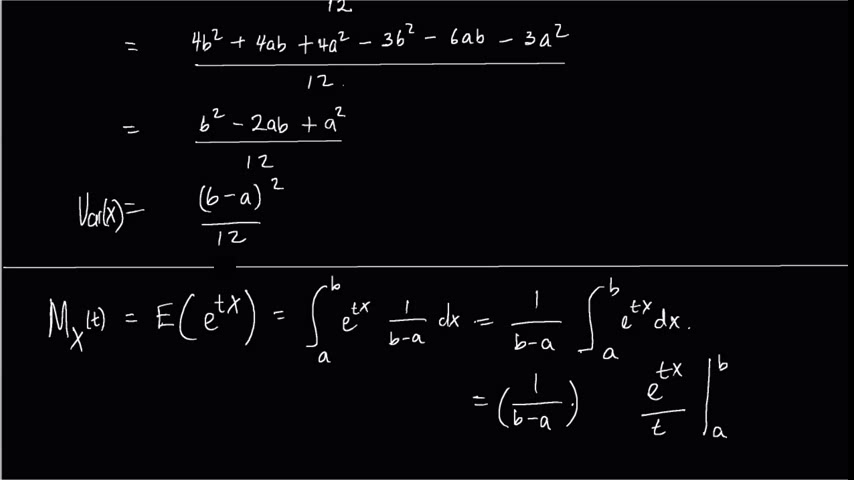 12
= 4b² + 4ab + 4a² - 3b² - 6ab - 3a² / 12.
= b² - 2ab + a² / 12
Var(x) = (b-a)² / 12
M_X(t) = E(e^{tx}) = ∫_a^b e^{tx} 1/(b-a) dx = 1/(b-a) ∫_a^b e^{tx} dx.
= (1/(b-a)) e^{tx}/t |_a^b